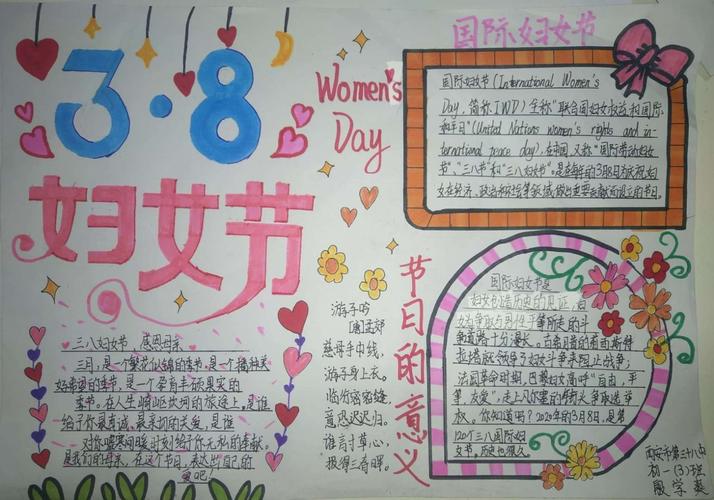 3·8
妇女节
Women's
Day
国际妇女节
国际妇女节(International Women's
Day, 简称IWD)全称"联合国妇女权益和国际
和平日"(United Nations women's rights and in-
ternational peace day),在中国,又称"国际劳动妇女
节"、"三八节"和"三八妇女节",是在每年的3月8日为庆祝妇
女在经济、政治和社会等领域做出重要贡献而设立的节日。
三八妇女节,感恩母亲
三月,是个繁花似锦的季节,是一个播种美
好希望的季节,是一个孕育丰硕果实的
季节。在人生崎岖坎坷的旅途上,是谁
给予你最真诚、最亲切的关爱,是谁
对你嘘寒问暖,时刻给予你无私的奉献
是我们的母亲,在这个节日,表达出自己的
爱吧!
游子吟
[唐]孟郊
慈母手中线,
游子身上衣。
临行密密缝,
意恐迟迟归。
谁言寸草心,
报得三春晖。
节日的意义
国际妇女节是
妇女创造历史的见证,
妇女为争取与男性平等所走的斗
争道路十分漫长。古希腊的莉西斯特
拉塔就领导了妇女斗争来阻止战争;
法国革命时期,巴黎妇女高呼"自由,平
等,友爱",走上凡尔赛的街头争取选举
权。你知道吗?2020年的3月8日,是第
120个三八国际妇
女节,历史也很久
西安市第三十八中
初一(3)班
殷学燊